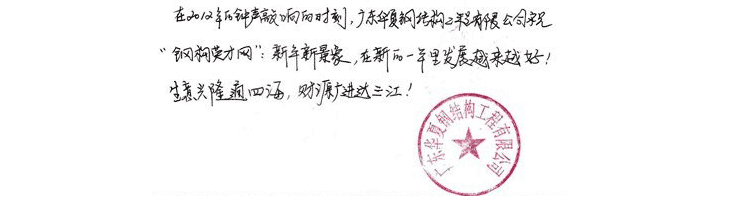 在2012年的钟声敲响的时刻，广东华夏钢结构工程有限公司祝
“钢构英才网”：新年新景象，在新的一年里发展越来越好！
生意兴隆通四海，财源广进达三江！
广东华夏钢结构工程有限公司